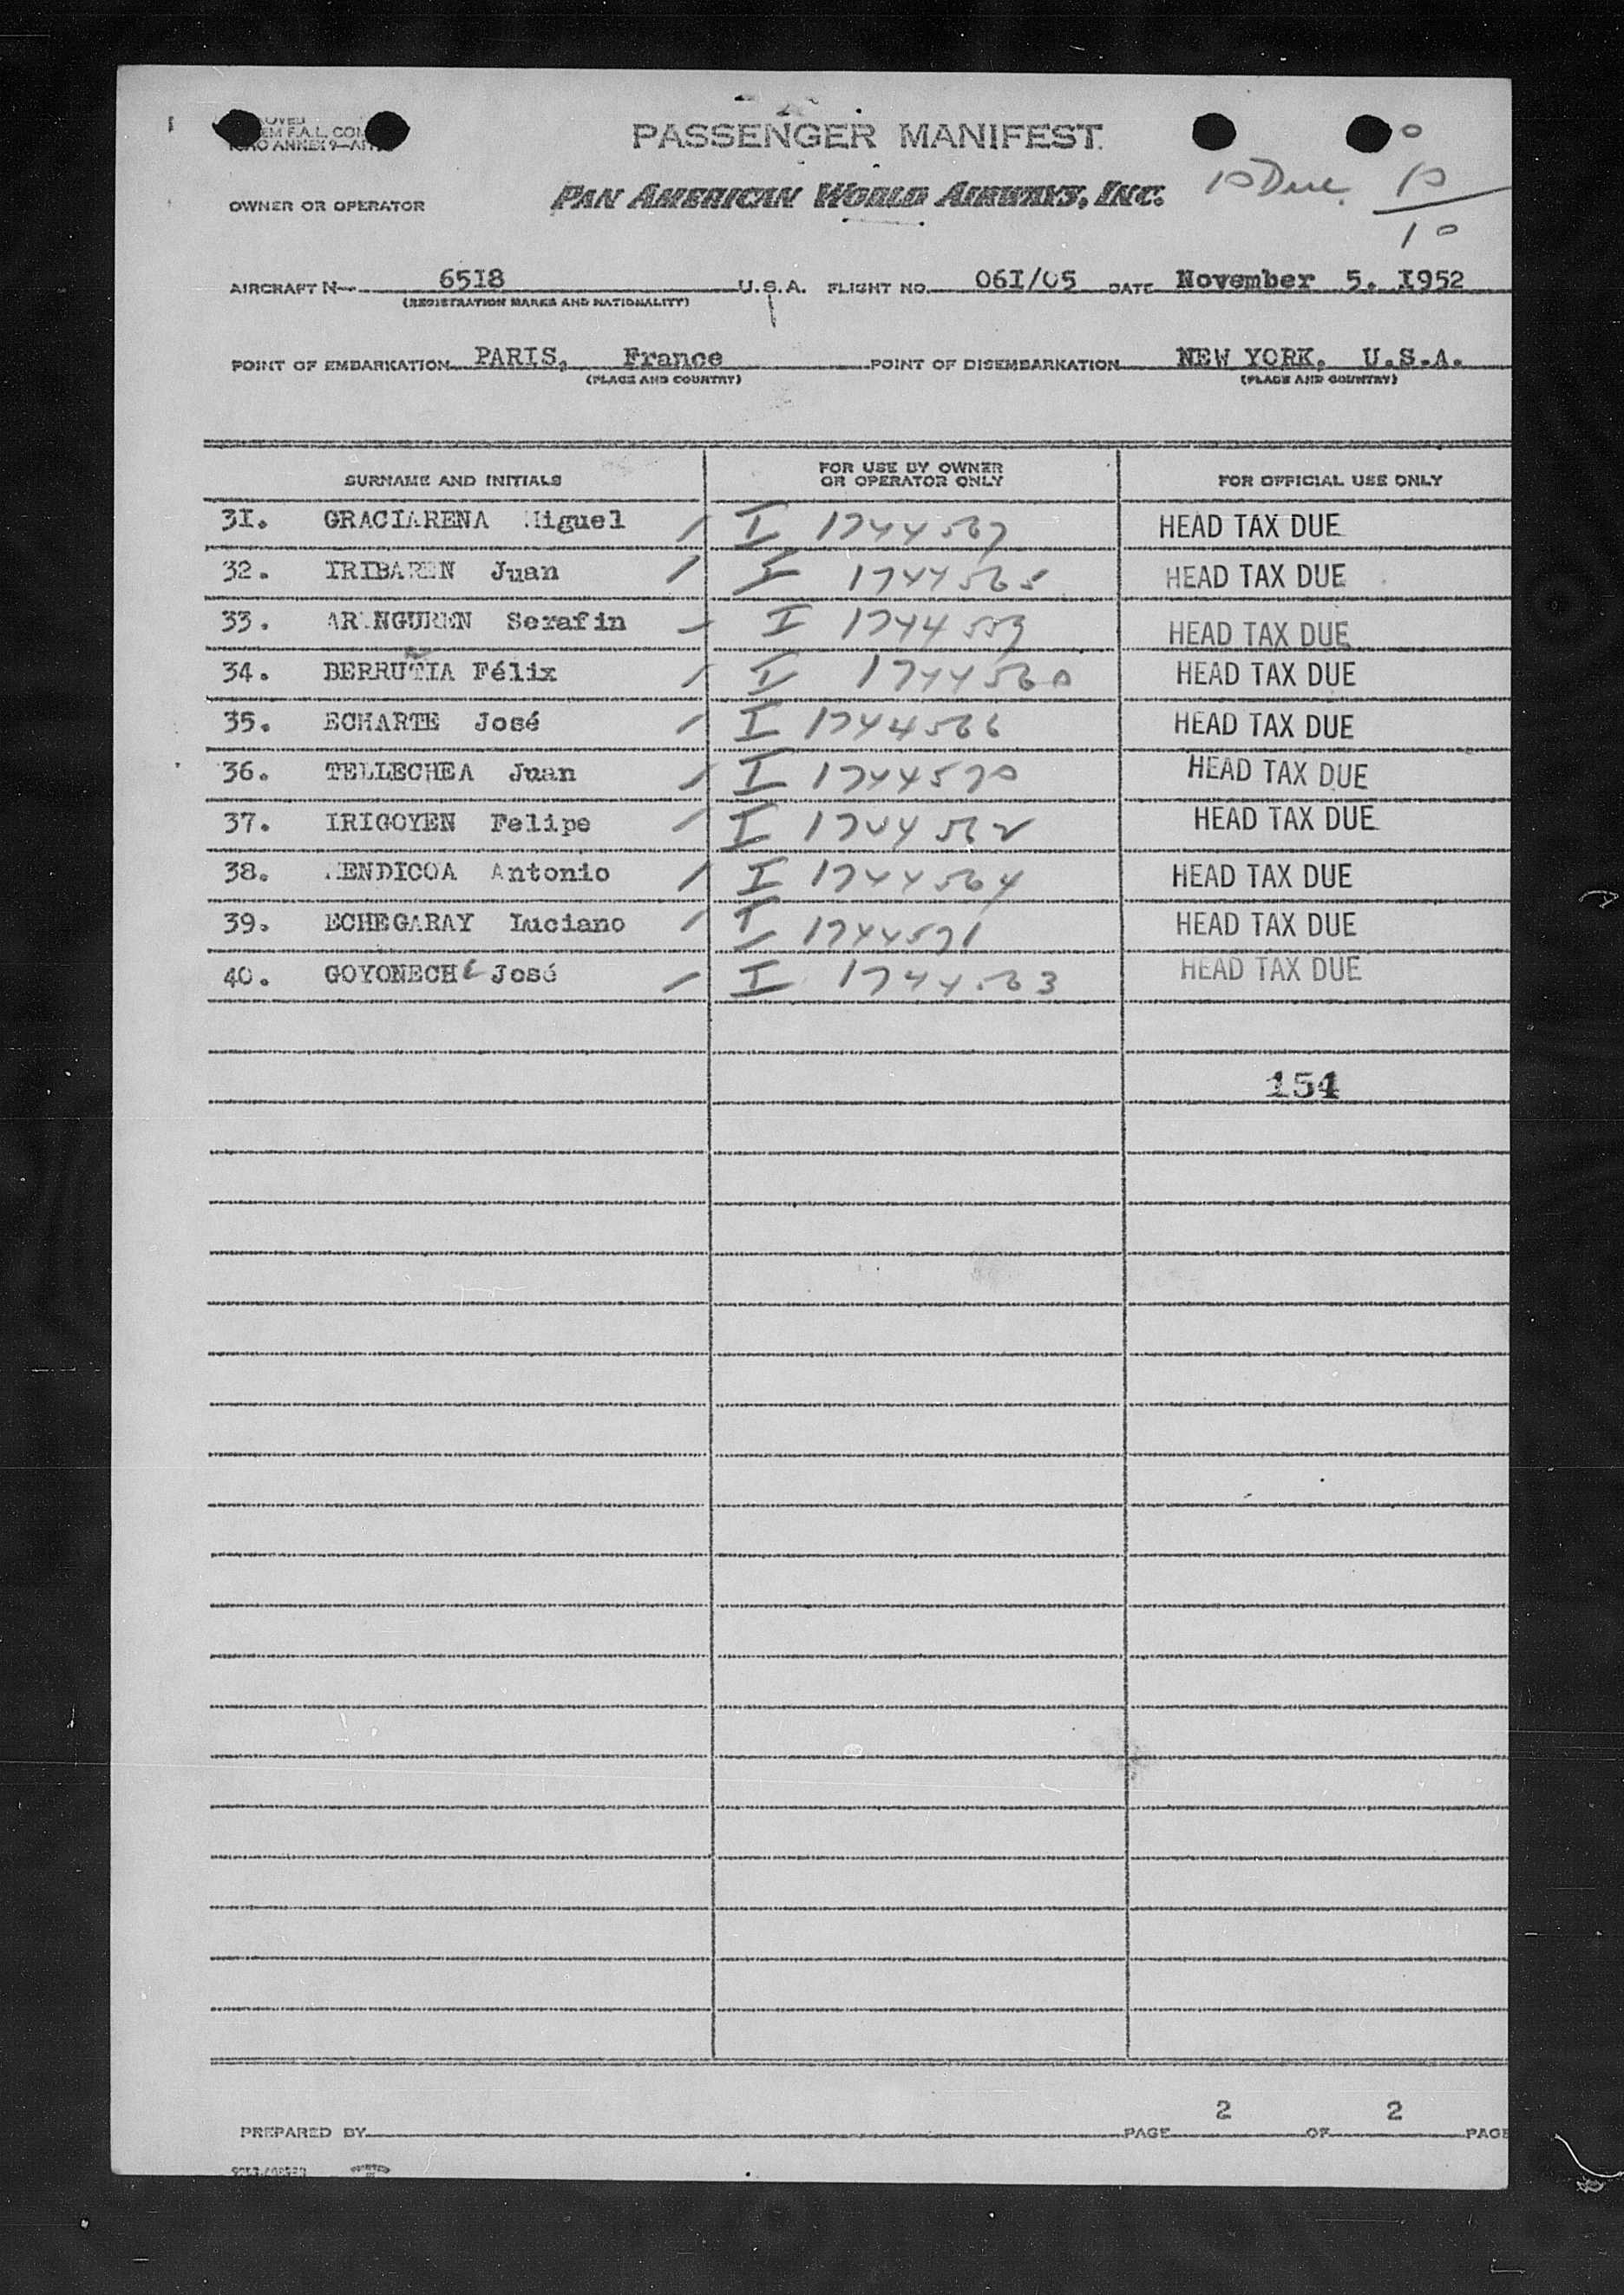 PASSENGER MANIFEST
PAN AMERICAN WORLD AIRWAYS, INC.
OWNER OR OPERATOR
10 Due 10
10
AIRCRAFT N- 6518 U.S.A. FLIGHT NO. 061/05 DATE November 5. 1952
(REGISTRATION MARKS AND NATIONALITY)
POINT OF EMBARKATION PARIS, France POINT OF DISEMBARKATION NEW YORK, U.S.A.
(PLACE AND COUNTRY) (PLACE AND COUNTRY)
SURNAME AND INITIALS FOR USE BY OWNER OR OPERATOR ONLY FOR OFFICIAL USE ONLY
31. GRACIARENA Miguel I 1744567 HEAD TAX DUE
32. IRIBAREN Juan I 1744565 HEAD TAX DUE
33. ARANGUREN Serafin I 1744559 HEAD TAX DUE
34. BERRUTIA Félix I 1744560 HEAD TAX DUE
35. ECHARTE José I 1744566 HEAD TAX DUE
36. TELLECHEA Juan I 1744570 HEAD TAX DUE
37. IRIGOYEN Felipe I 1744562 HEAD TAX DUE
38. MENDICOA Antonio I 1744564 HEAD TAX DUE
39. ECHEGARAY Luciano I 1744571 HEAD TAX DUE
40. GOYONECHE José I 1744563 HEAD TAX DUE
154
PREPARED BY PAGE 2 OF 2 PAGE